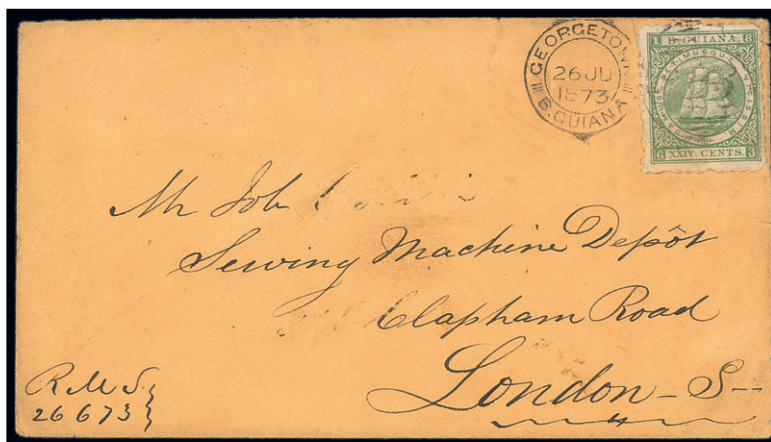 GEORGETOWN
26 JU
1873
B. GUIANA
1 B. GUIANA. 8
6 XXIV. CENTS. 3
Mr Job
Sewing Machine Depôt
Clapham Road
London - S -
R.M.S.
26 6 73